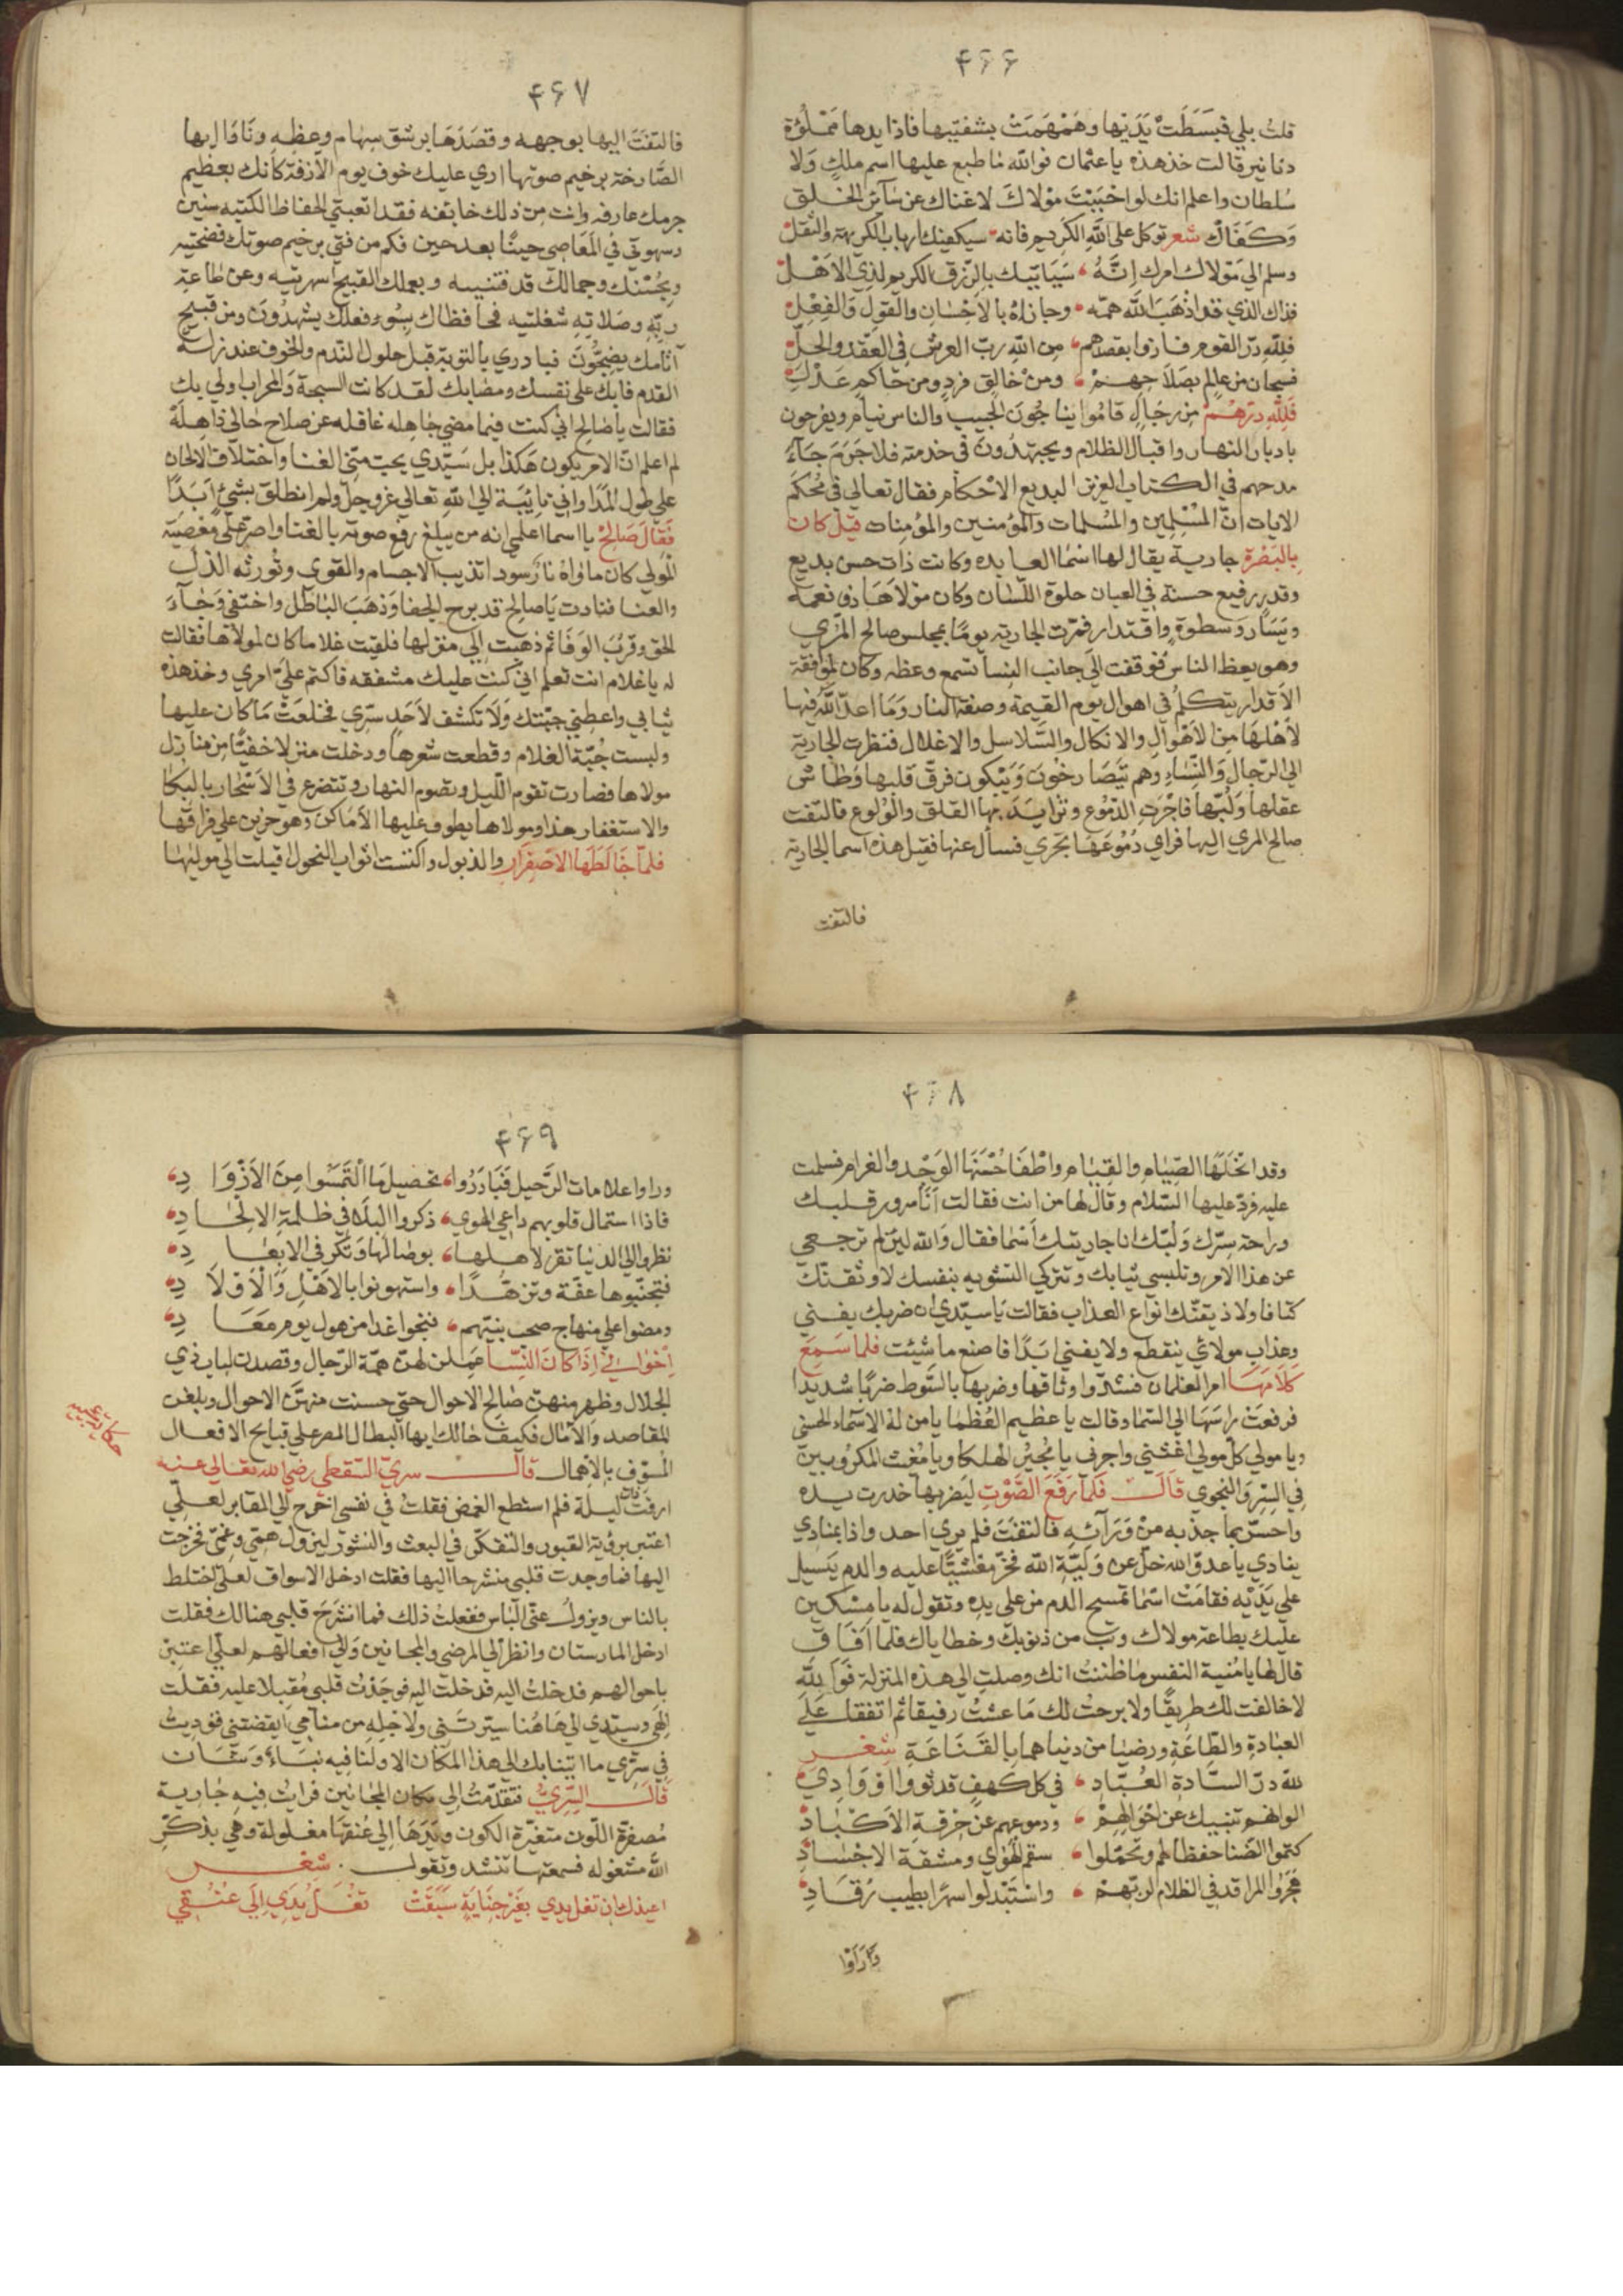 ۴۶۶
قلت بلي فبسطت يديها وهمهمت بشفتيها فاذا يدها مملؤة
دنانير قالت خذ هذه يا عثمان فوالله ما طبع عليها اسم ملك ولا
سلطان واعلم انك لو احببت مولاك لاغناك عن سآئر الخلق
وكفاك شعر توكل على الله الكريم فانه سيكفيك ارباب الكريهة والثقل
وسلم الي مولاك امرك انه سياتيك بالرزق الكريم لذي الاهل
فذاك الذي قد اذهب الله همه وجازاه بالاحسان والقول والفعل
فلله در القوم فازوا بقصدهم من الله رب العرش في العقد والحل
فسبحان من عالم بصلاحهم ومن خالق فرد ومن حاكم عدل
فلله درهم من رجال قاموا يناجون الحبيب والناس نيام ويفرحون
بادبار النهار واقبال الظلام ويجتهدون في خدمته فلا جرم جآء
مدحهم في الكتاب العزيز البديع الاحكام فقال تعالى في محكم
الايات ان المسلمين والمسلمات والمؤمنين والمؤمنات قيل كان
بالبصرة جارية يقال لها اسما العابده وكانت ذات حسن بديع
وقدر رفيع حسنة في العيان حلوة اللسان وكان مولاها ذي نعمة
ويسار وسطوة واقتدار فمرت الجارية يوما بمجلس صالح المري
وهو يعظ الناس فوقفت الي جانب النسا تسمع وعظه وكان لموافقة
الاقدار يتكلم في اهوال يوم القيمة وصفة النار وما اعد الله فيها
لاهلها من الاهوال والانكال والسلاسل والاغلال فنظرت الجارية
الي الرجال والنساء وهم يتصارخون ويبكون فرق قلبها وطاش
عقلها ولبها فاجرت الدموع وتزايد بها القلق والولوع فالتفت
صالح المري اليها فراي دموعها تجري فسأل عنها فقيل هذه اسما الجارية
فالتفت
۴۶۷
فالتفت اليها بوجهه وقصدها برشق سهام وعظه ونادا ايها
الصارخة برخيم صوتها اري عليك خوف يوم الازفة كانك بعظيم
جرمك عارفه وانت من ذلك خائفه فقد اتعبتي الحفاظ الكتبه سنين
وسهوتي في المعاصي حينا بعد حين فكم من فتي برخيم صوتك فضحتيه
وبحسنك وجمالك قد فتنتيه وبعملك القبيح اسهرتيه وعن طاعة
ربه وصلاته شغلتيه فحافظاك بسوء فعلك يشهدون ومن قبيح
آثامك يضجون فبادري بالتوبة قبل حلول الندم والخوف عند زلة
القدم فابك على نفسك ومصابك لقد كانت السبحة والمحراب اولي بك
فقالت يا صالح اني كنت فيما مضي جاهله غافله عن صلاح حالي ذاهلة
لم اعلم ان الامر يكون هكذا بل سيدي يحب مني الغنا واختلاف الالحان
علي طول المدا واني تائبة الي الله تعالي عز وجل ولم انطلق بشئ ابدا
فقال صالح يا اسما اعلمي انه من يبلغ رفع صوته بالغنا واصر على معصية
المولي كان ماواه نار سودا تذيب الاجسام والقوي وتورثه الذل
والعنا فنادت يا صالح قد برح الخفا وذهب الباطل واختفي وجآء
الحق وقرب الوفا ثم ذهبت الي منزلها فلقيت غلاما كان لمولاها فقالت
له يا غلام انت تعلم اني كنت عليك مشفقه فاكتم علي امري وخذ هذه
ثيابي واعطني جبتك ولا تكشف لاحد سري فخلعت ما كان عليها
ولبست جبة الغلام وقطعت شعرها ودخلت منزلا خفيا من منازل
مولاها فصارت تقوم الليل وتصوم النهار وتتضرع في الاسحار بالبكا
والاستغفار هذا ومولاها يطوف عليها الاماكن وهو حزين علي فراقها
فلما خالطها الاصفرار والذبول واكتست اثواب النحول اقبلت الي موليها
۴۶۸
وقد انحلها الصيام والقيام واطفا حسنها الوجد والغرام فسلمت
عليه فرد عليها السلام وقال لها من انت فقالت انا سرور قلبك
وراحة سرك ولبك انا جاريتك أسما فقال والله لئن لم ترجعي
عن هذا الامر وتلبسي ثيابك وتتركي التشويه بنفسك لاوثقنك
كتافا ولاذيقنك انواع العذاب فقالت يا سيدي ان ضربك يفني
وعذاب مولائي ينقطع ولا يفني ابدا فاصنع ما شئت فلما سمع
كلامها امر الغلمان فشدوا وثاقها وضربها بالسوط ضربا شديدا
فرفعت راسها الي السماء وقالت يا عظيم العظما يا من له الاسماء الحسني
ويا مولي كل مولي اغثني واجرني يا مجير الهلكا ويا مغث المكروبين
في السر والنجوي قال فلما رفع الصوت ليضربها خدرت يده
واحس بما جذبه من ورآئه فالتفت فلم يري احد واذا بمنادي
ينادي يا عدو الله خل عن ولية الله فخر مغشيا عليه والدم يسيل
علي يديه فقامت اسما تمسح الدم من علي يده وتقول له يا مسكين
عليك بطاعة مولاك وتب من ذنوبك وخطاياك فلما افاق
قال لها يا منية النفس ما ظننت انك وصلت الي هذه المنزلة فوالله
لا خالفت لك طريقا ولا برحت لك ما عشت رفيقا ثم اتفقا علي
العبادة والطاعة ورضيا من دنياهما بالقناعة شعر
لله در السادة العباد في كل كهف قد ثووا او وادي
الوانهم تنبيك عن احوالهم ودموعهم عن حرقة الاكباد
كتموا الضنا حفظا لهم وتحملوا سقم الهوي ومشقة الاجساد
هجروا المراقد في الظلام لربهم واستبدلوا سهرا بطيب رقاد
وراوا
۴۶۹
وراوا علامات الرحيل فبادروا تحصيل ما التمسوا من الازواد
فاذا استمال قلوبهم داعي الهوي ذكروا البلا في ظلمة الالحاد
نظروا الي الدنيا تغر لاهلها بوصالها وتكر في الابعاد
فتجنبوها عفة وتزهدا واستهونوا بالاهل والاولاد
ومضوا علي منهاج صحب نبيهم فنجوا غدا من هول يوم معاد
اخواني إذا كان النسا عملن لهن همة الرجال وقصدن لباب ذي
الجلال وظهر منهن صالح الاحوال حتي حسنت منهن الاحوال وبلغن
المقاصد والآمال فكيف حالك ايها البطال المصر علي قبايح الافعال
المسوف بالاهمال قال سري السقطي رضي الله تعالي عنه
ارقت ليلة فلم استطع الغمض فقلت في نفسي اخرج الي المقابر لعلي
اعتبر برؤية القبور والتفكر في البعث والنشور ليزول همي وغمي فخرجت
اليها فما وجدت قلبي منشرحا اليها فقلت ادخل الاسواق لعلي اختلط
بالناس ويزول عني الباس ففعلت ذلك فما انشرح قلبي هنالك فقلت
ادخل المارستان وانظر الي المرضي والمجانين والي افعالهم لعلي اعتبر
باحوالهم فدخلت اليه فوجدت قلبي مقبلا عليه فقلت
الهي وسيدي الي هاهنا سيرتني ولاجله من منامي ايقضتني فنوديت
في سري ما اتينا بك الي هذا المكان الا ولنا فيه نباء وشان
قال السري فتقدمت الي مكان المجانين فرايت فيه جارية
مصفرة اللون متغيرة الكون ويدها إلي عنقها مغلولة وهي بذكر
الله مشغوله فسمعتها تنشد وتقول شعر
اعيذك ان تغل يدي بغير جناية سبقت تغل يدي إلي عنقي
حكاية عجيبه